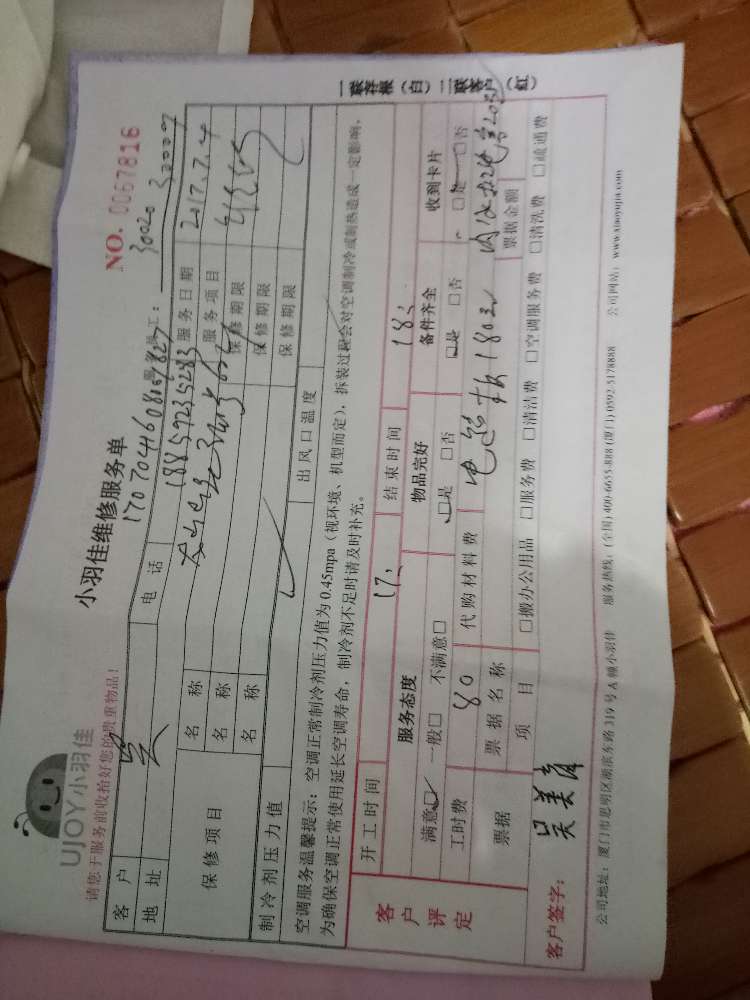 UJOY小羽佳
请您于服务前收拾好您的贵重物品!
小羽佳维修服务单
NO. 0067816
客户 吴 电话 18859235283 服务日期 2017.7.4
地址 服务项目
保修项目 名称 保修期限
名称 保修期限
名称 保修期限
制冷剂压力值 出风口温度
空调服务温馨提示:空调正常制冷剂压力值为0.45mpa(视环境、机型而定),拆装过程会对空调制冷或制热造成一定影响,
为确保空调正常使用延长空调寿命,制冷剂不足时请及时补充。
开工时间 17: 结束时间 18:
客户评定 服务态度 物品完好 备件齐全 收到卡片
满意□ 一般□ 不满意□ □是 □否 □是 □否 □是 □否
工时费 80 代购材料费 电路板180元
票据 票据名称 票据金额
项目 □搬办公用品 □服务费 □清洁费 □空调服务费 □清洗费 □疏通费
客户签字: 吴美
公司地址:厦门市思明区湖滨东路319号A幢小羽佳 服务热线:(全国)400-6655-888 (厦门)0592-5178888 公司网站:www.xiaoyujia.com
一联存根(白)二联客户(红)